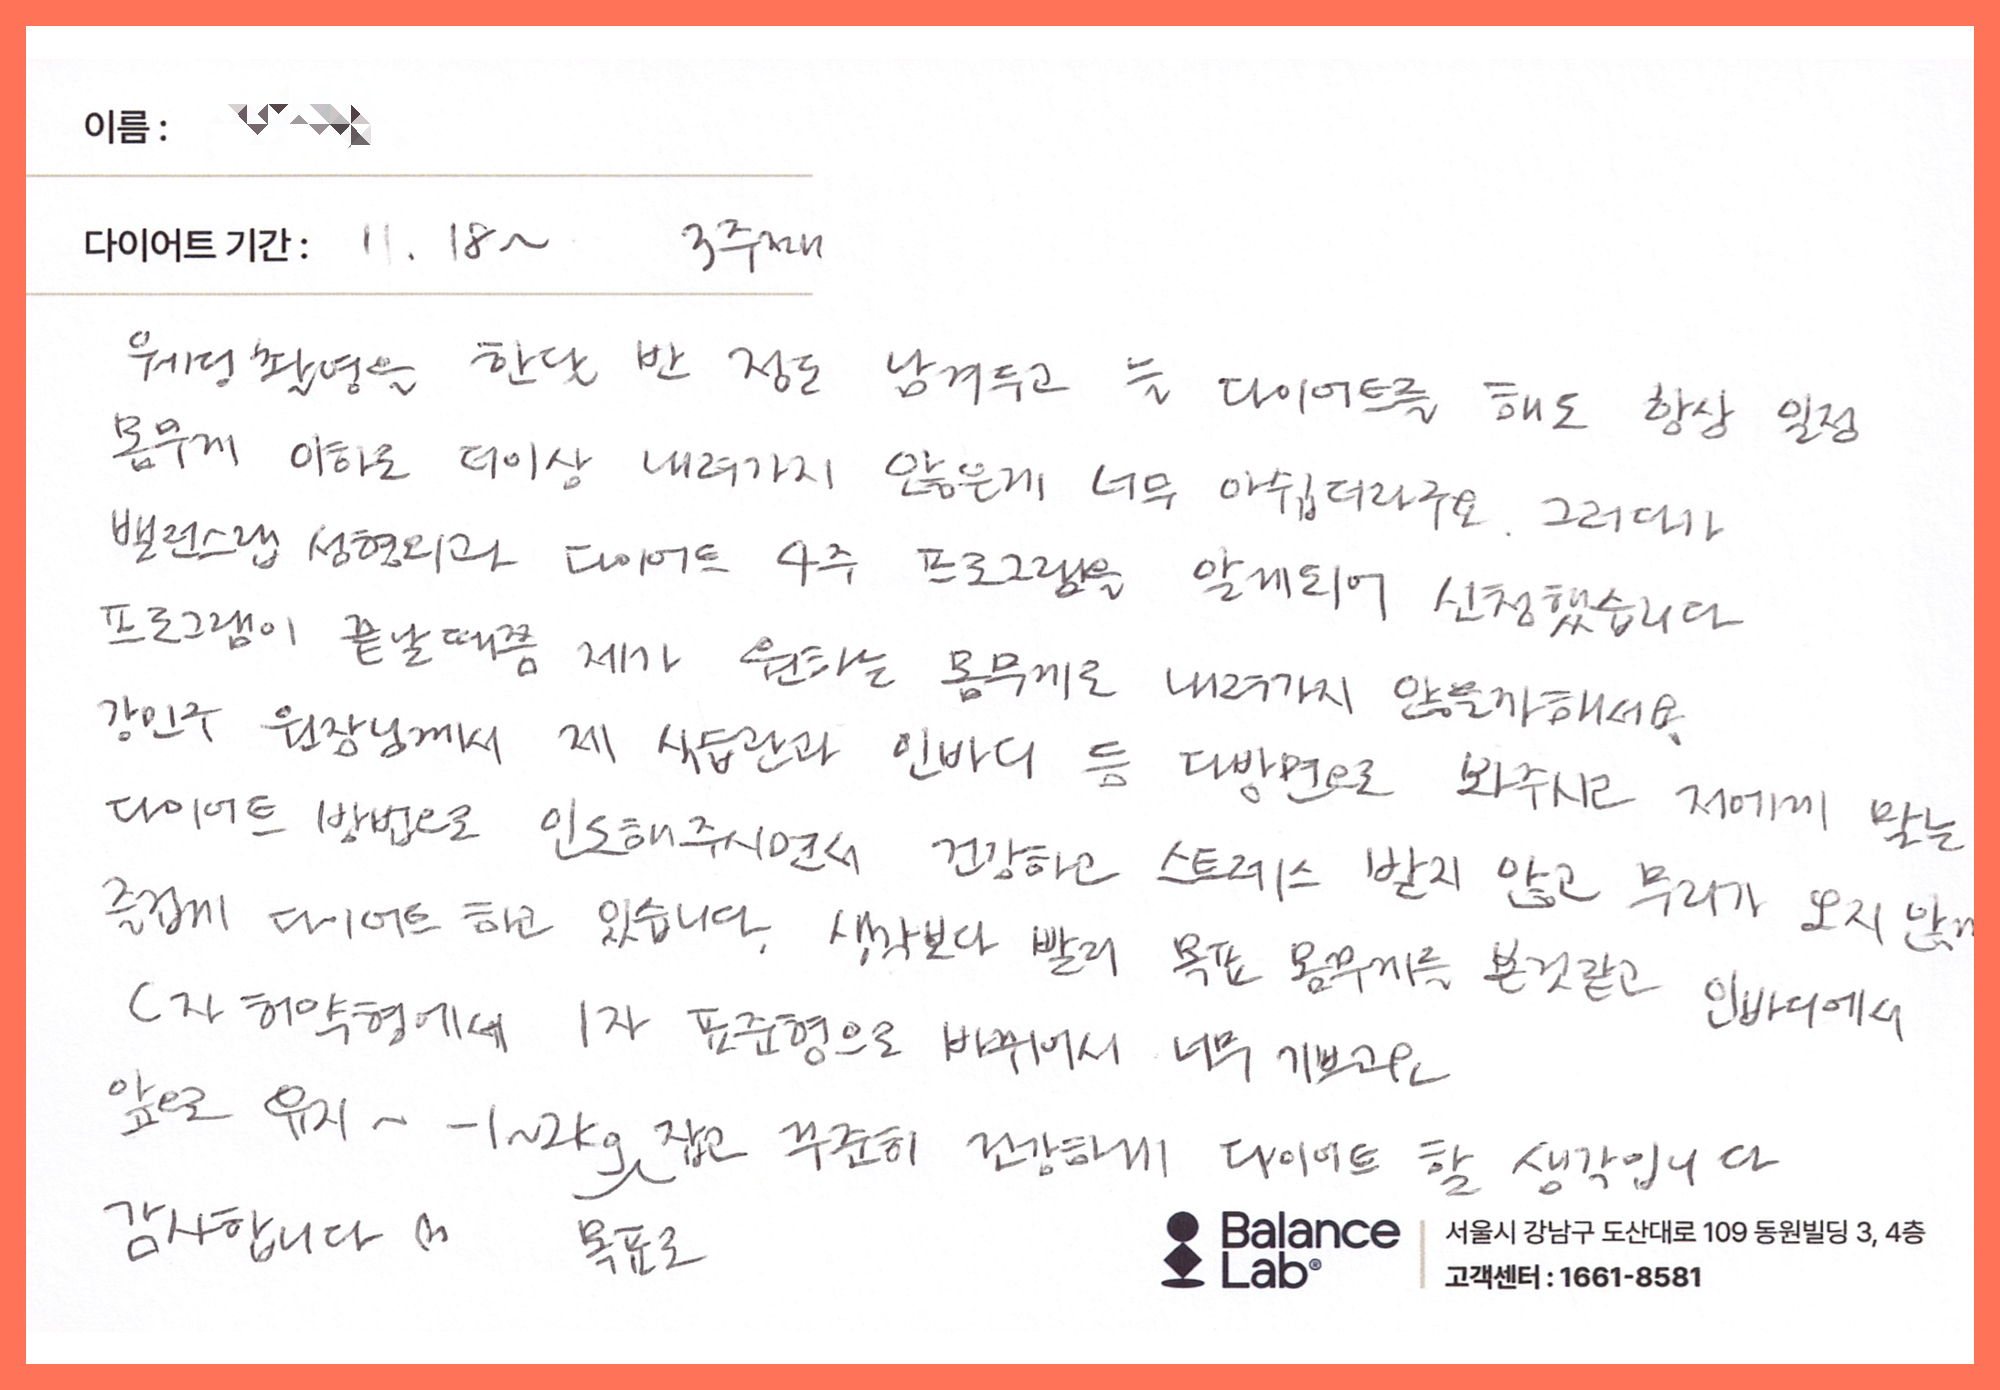 이름 :
다이어트 기간 : 11. 18~ 3주째
웨딩촬영을 한달 반 정도 남겨두고 늘 다이어트를 해도 항상 일정
몸무게 이하로 더이상 내려가지 않은게 너무 아쉽더라구요. 그러다가
밸런스랩 성형외과 다이어트 4주 프로그램을 알게되어 신청했습니다
프로그램이 끝날때쯤 제가 원하는 몸무게로 내려가지 않을까해서요.
강민구 원장님께서 제 식습관과 인바디 등 다방면으로 봐주시고 저에게 맞는
다이어트 방법으로 인도해주시면서 건강하고 스트레스 받지 않고 무리가 오지 않게
즐겁게 다이어트 하고 있습니다. 생각보다 빨리 목표 몸무게를 본것같고 인바디에서
C자 허약형에서 I자 표준형으로 바뀌어서 너무 기쁘고요
앞으로 유지~ -1~2kg 잡고 꾸준히 건강하게 다이어트 할 생각입니다
감사합니다 목표로
Balance Lab® 서울시 강남구 도산대로 109 동원빌딩 3, 4층
고객센터 : 1661-8581